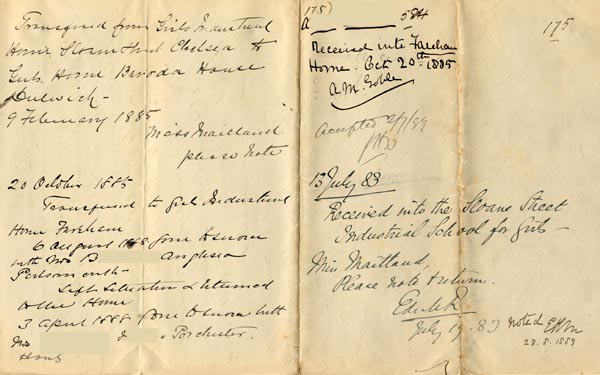 Transferred from Girls Industrial
Home Sloane Street Chelsea to
Girls Home Baroda House
Dulwich -
9 February 1885
Miss Maitland
please note
20 October 1885
Transferred to Girls Industrial
Home Fareham
6 August gone to service
with Mrs B Anglesea
Portsmouth -
Left Situation & returned
to the Home
3 April 1888 gone to service with
Mrs Porchester.
175)
A 584
Received into Fareham
Home. Oct 20th 1885
A.M. Goble
Accepted 2/7/83
13 July 83
Received into the Sloane Street
Industrial School for Girls -
Miss Maitland,
Please note & return.
July 19. 83
noted
28.5.1889
175